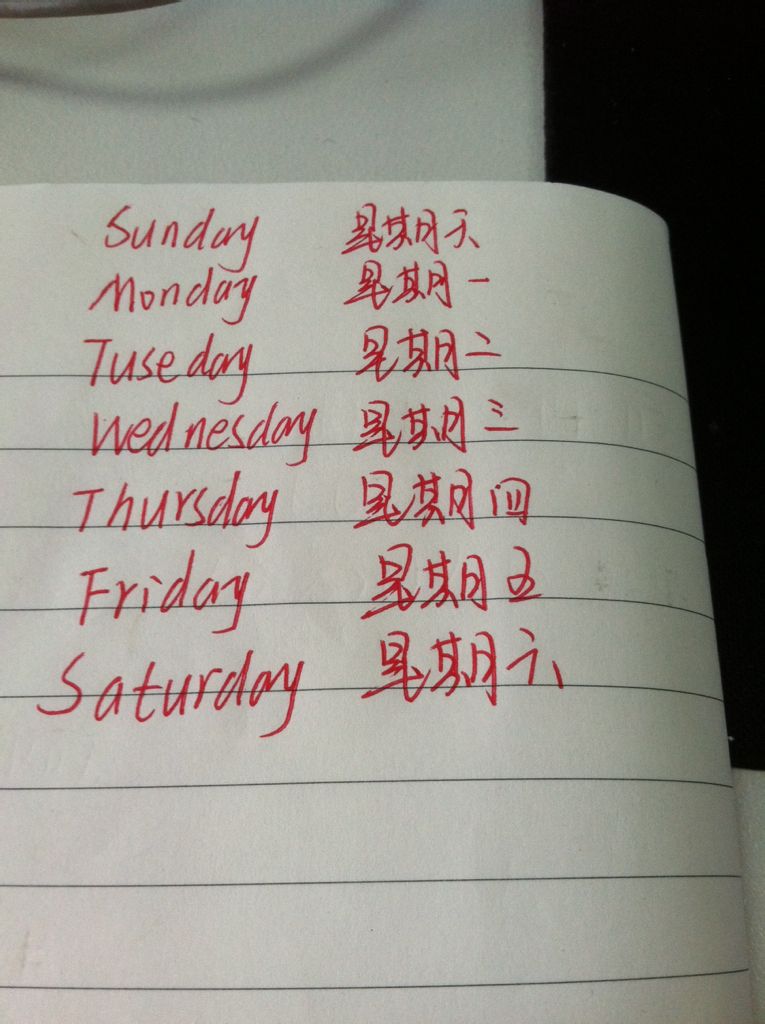 Sunday 星期天
Monday 星期一
Tuseday 星期二
Wednesday 星期三
Thursday 星期四
Friday 星期五
Saturday 星期六